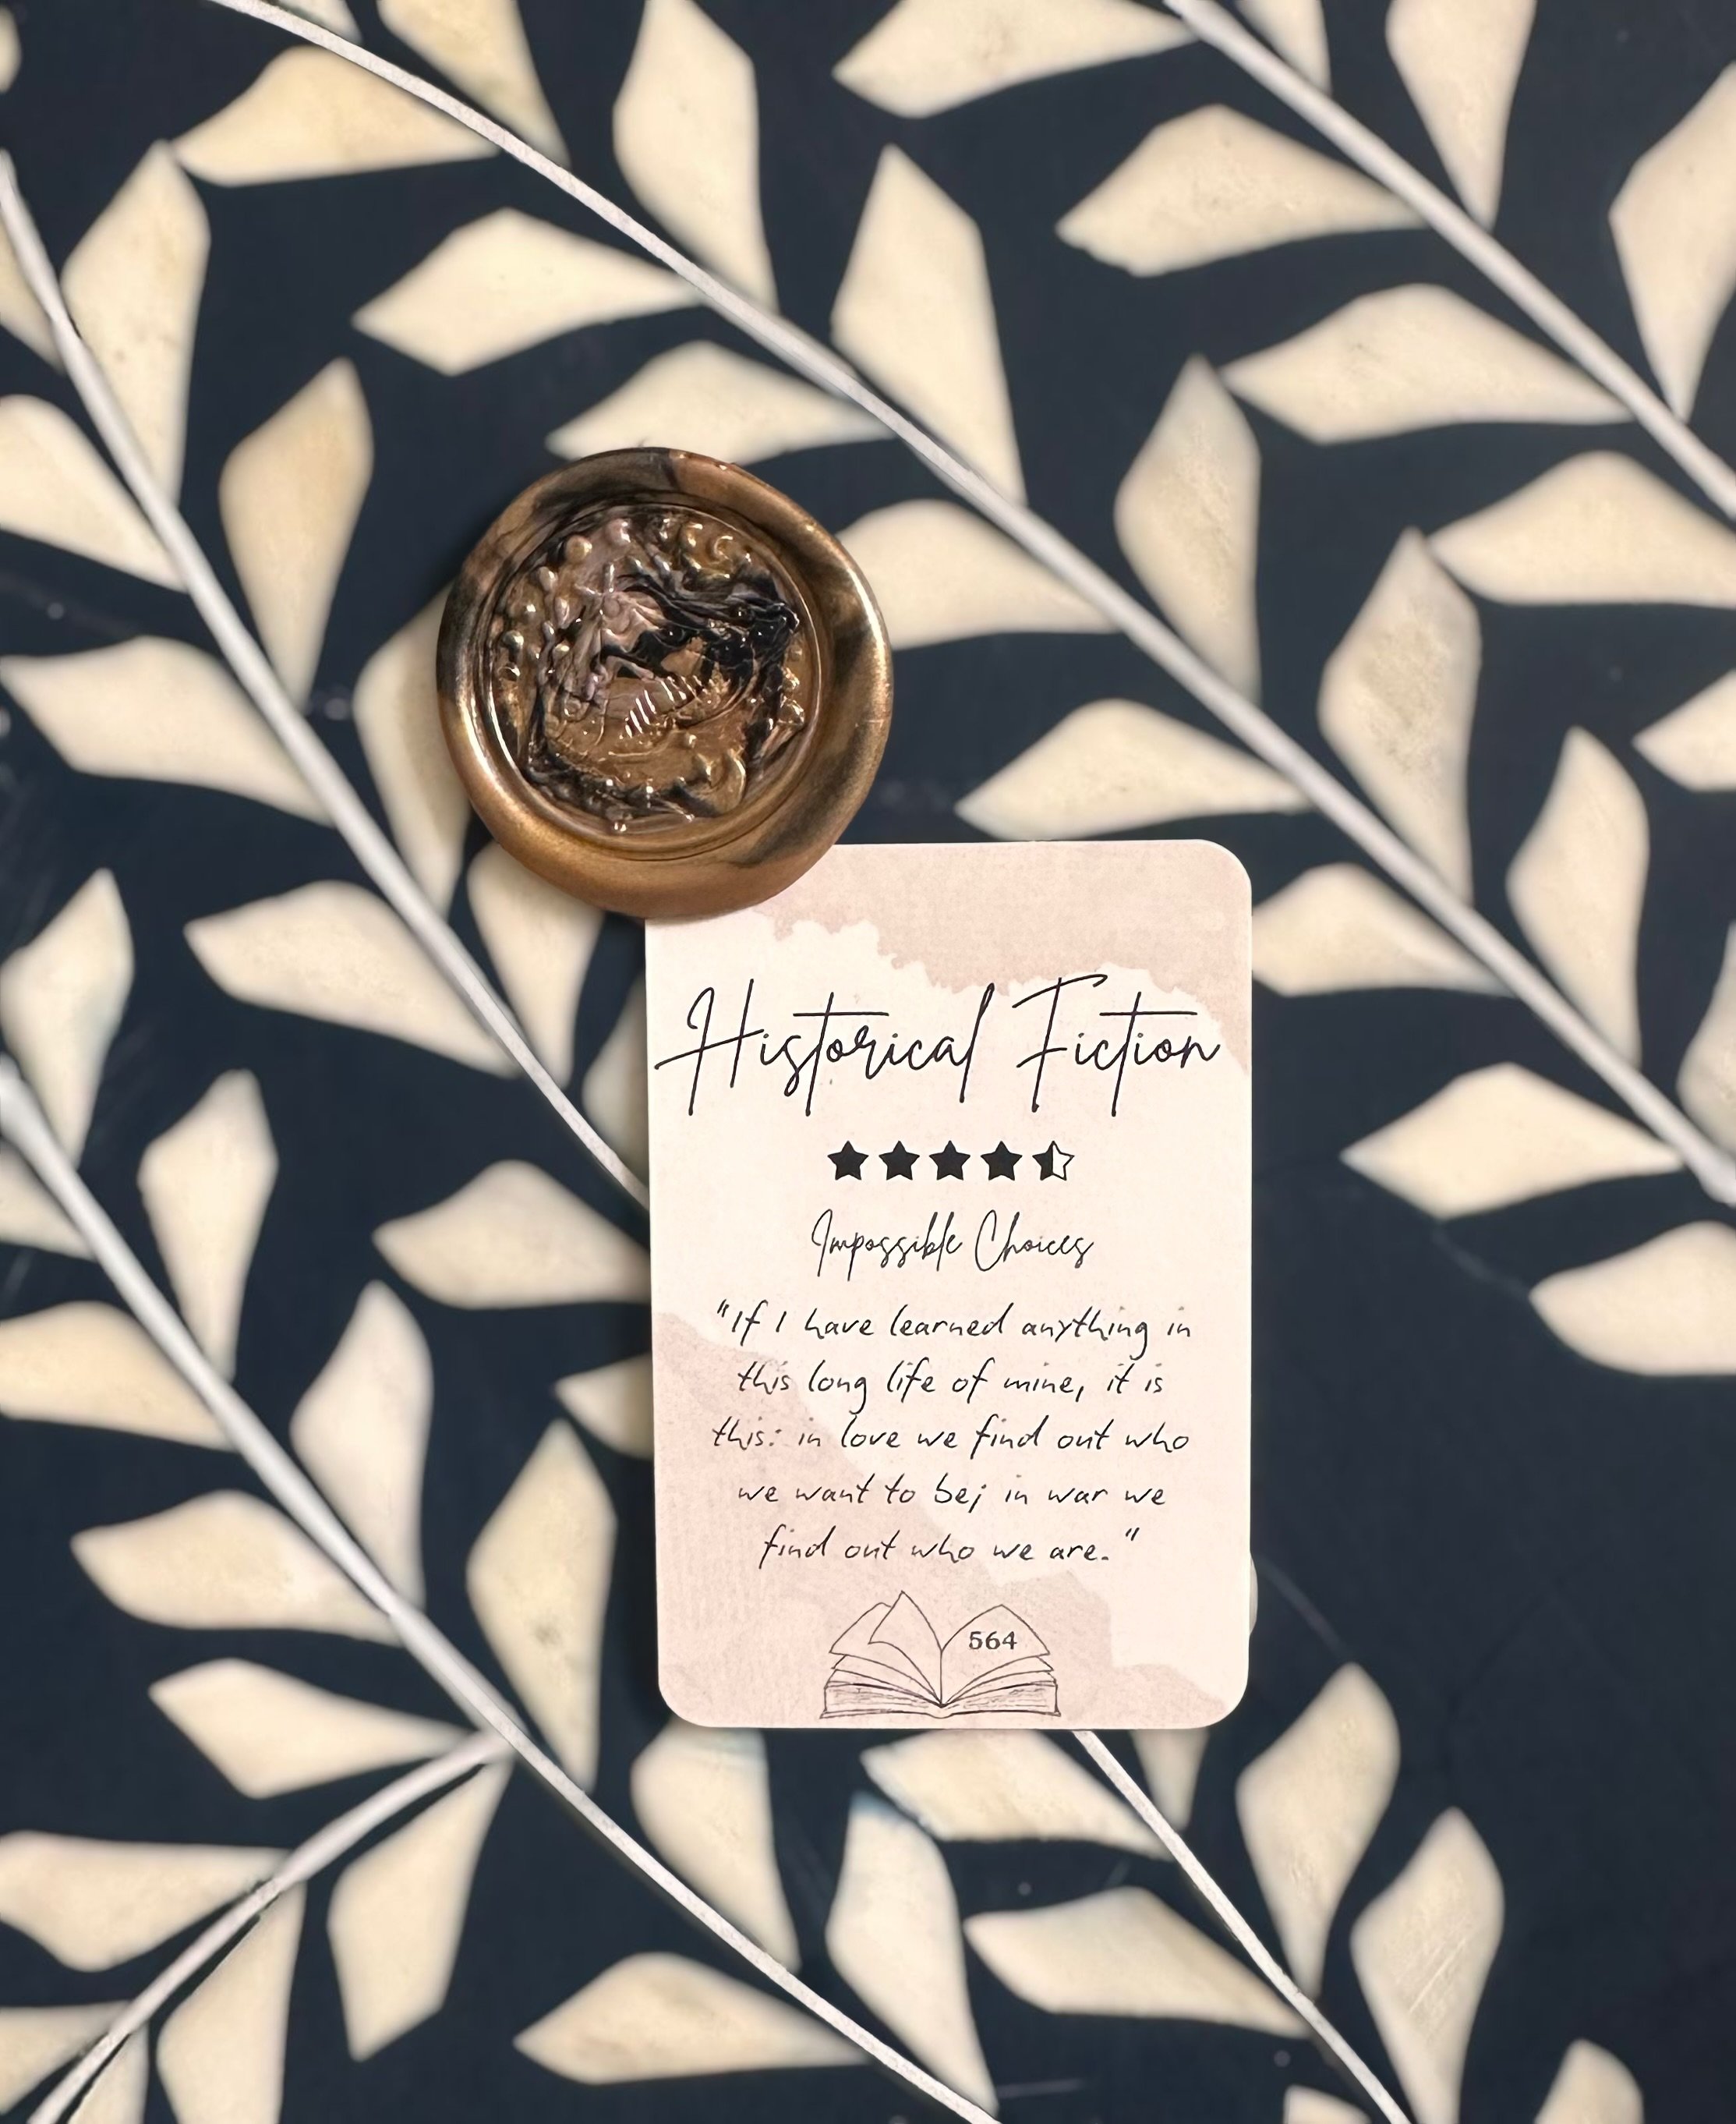 Historical Fiction
Impossible Choices
"If I have learned anything in
this long life of mine, it is
this: in love we find out who
we want to be; in war we
find out who we are."
564